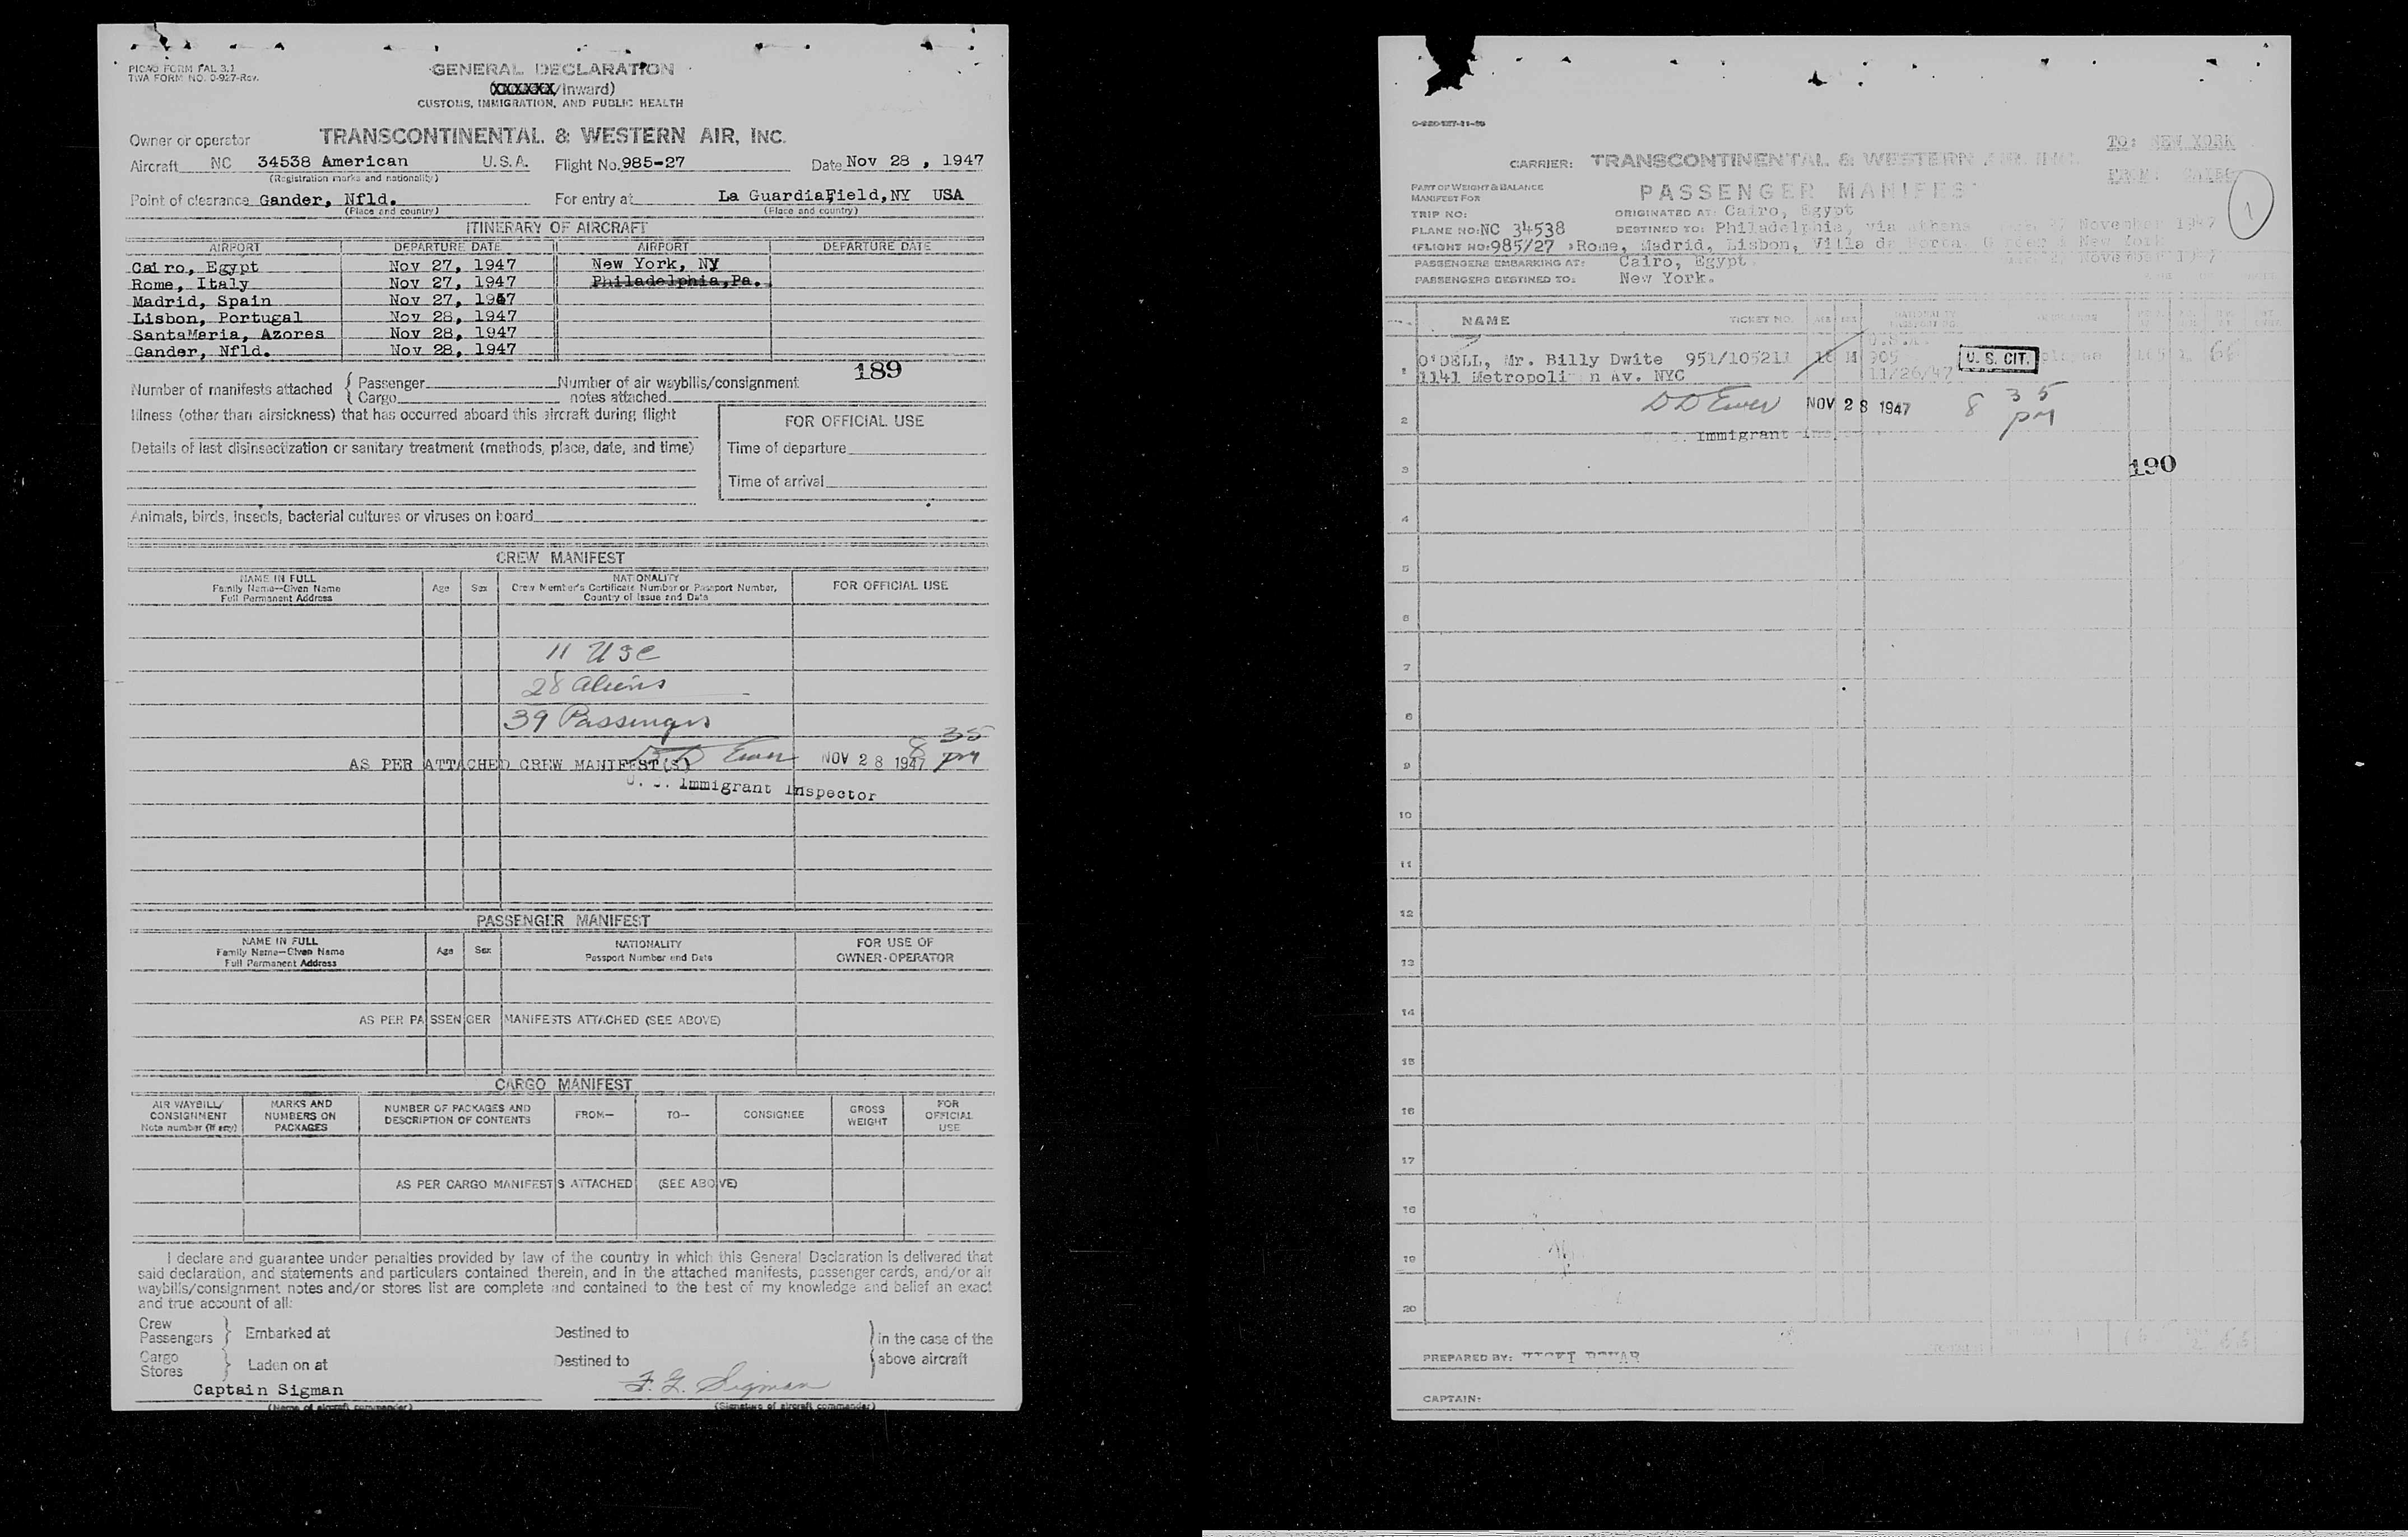 PICAO FORM FAL 3.1
TWA FORM NO. O-927-Rev.
GENERAL DECLARATION
(XXXXXX/Inward)
CUSTOMS, IMMIGRATION, AND PUBLIC HEALTH
Owner or operator TRANSCONTINENTAL & WESTERN AIR, INC.
Aircraft NC 34538 American U.S.A. Flight No. 985-27 Date Nov 28, 1947
(Registration marks and nationality)
Point of clearance Gander, Nfld. For entry at La Guardia Field, NY USA
(Place and country) (Place and country)
ITINERARY OF AIRCRAFT
AIRPORT DEPARTURE DATE AIRPORT DEPARTURE DATE
Cairo, Egypt Nov 27, 1947 New York, NY
Rome, Italy Nov 27, 1947 Philadelphia, Pa.
Madrid, Spain Nov 27, 1947
Lisbon, Portugal Nov 28, 1947
SantaMaria, Azores Nov 28, 1947
Gander, Nfld. Nov 28, 1947
189
Number of manifests attached { Passenger Number of air waybills/consignment
Cargo notes attached
Illness (other than airsickness) that has occurred aboard this aircraft during flight
FOR OFFICIAL USE
Details of last disinsectization or sanitary treatment (methods, place, date, and time)
Time of departure
Time of arrival
Animals, birds, insects, bacterial cultures or viruses on board
CREW MANIFEST
NAME IN FULL
Family Name—Given Name
Full Permanent Address
Age Sex
NATIONALITY
Crew Member's Certificate Number or Passport Number,
Country of Issue and Date
FOR OFFICIAL USE
11 USC
28 Aliens
39 Passengers
AS PER ATTACHED CREW MANIFEST(S) D D Ewer NOV 28 1947 8 35 PM
U. S. Immigrant Inspector
PASSENGER MANIFEST
NAME IN FULL
Family Name—Given Name
Full Permanent Address
Age Sex
NATIONALITY
Passport Number and Date
FOR USE OF
OWNER-OPERATOR
AS PER PASSENGER MANIFESTS ATTACHED (SEE ABOVE)
CARGO MANIFEST
AIR WAYBILL/
CONSIGNMENT
Note number (if any)
MARKS AND
NUMBERS ON
PACKAGES
NUMBER OF PACKAGES AND
DESCRIPTION OF CONTENTS
FROM—
TO—
CONSIGNEE
GROSS
WEIGHT
FOR
OFFICIAL
USE
AS PER CARGO MANIFESTS ATTACHED (SEE ABOVE)
I declare and guarantee under penalties provided by law of the country in which this General Declaration is delivered that
said declaration, and statements and particulars contained therein, and in the attached manifests, passenger cards, and/or air
waybills/consignment notes and/or stores list are complete and contained to the best of my knowledge and belief an exact
and true account of all:
Crew
Passengers } Embarked at Destined to } in the case of the
Cargo
Stores } Laden on at Destined to above aircraft
Captain Sigman F. G. Sigman
(Name of aircraft commander) (Signature of aircraft commander)
TO: NEW YORK
CARRIER: TRANSCONTINENTAL & WESTERN AIR INC.
FROM: CAIRO
PART OF WEIGHT & BALANCE
MANIFEST FOR
PASSENGER MANIFEST
1
TRIP NO: ORIGINATED AT: Cairo, Egypt
PLANE NO: NC 34538 DESTINED TO: Philadelphia, via Athens 27 November 1947
FLIGHT NO: 985/27 Rome, Madrid, Lisbon, Villa de Porca, Gander & New York
PASSENGERS EMBARKING AT: Cairo, Egypt. November 1947
PASSENGERS DESTINED TO: New York.
NAME TICKET NO. AGE SEX NATIONALITY
U.S.A.
1 O'DELL, Mr. Billy Dwite 951/105211 18 M 905 U. S. CIT. 66
1141 Metropolitan Av. NYC 11/26/47
D D Ewer NOV 28 1947 8 35 PM
2
Immigrant
3 190
4
5
6
7
8
9
10
11
12
13
14
15
16
17
18
19
20
PREPARED BY:
CAPTAIN: